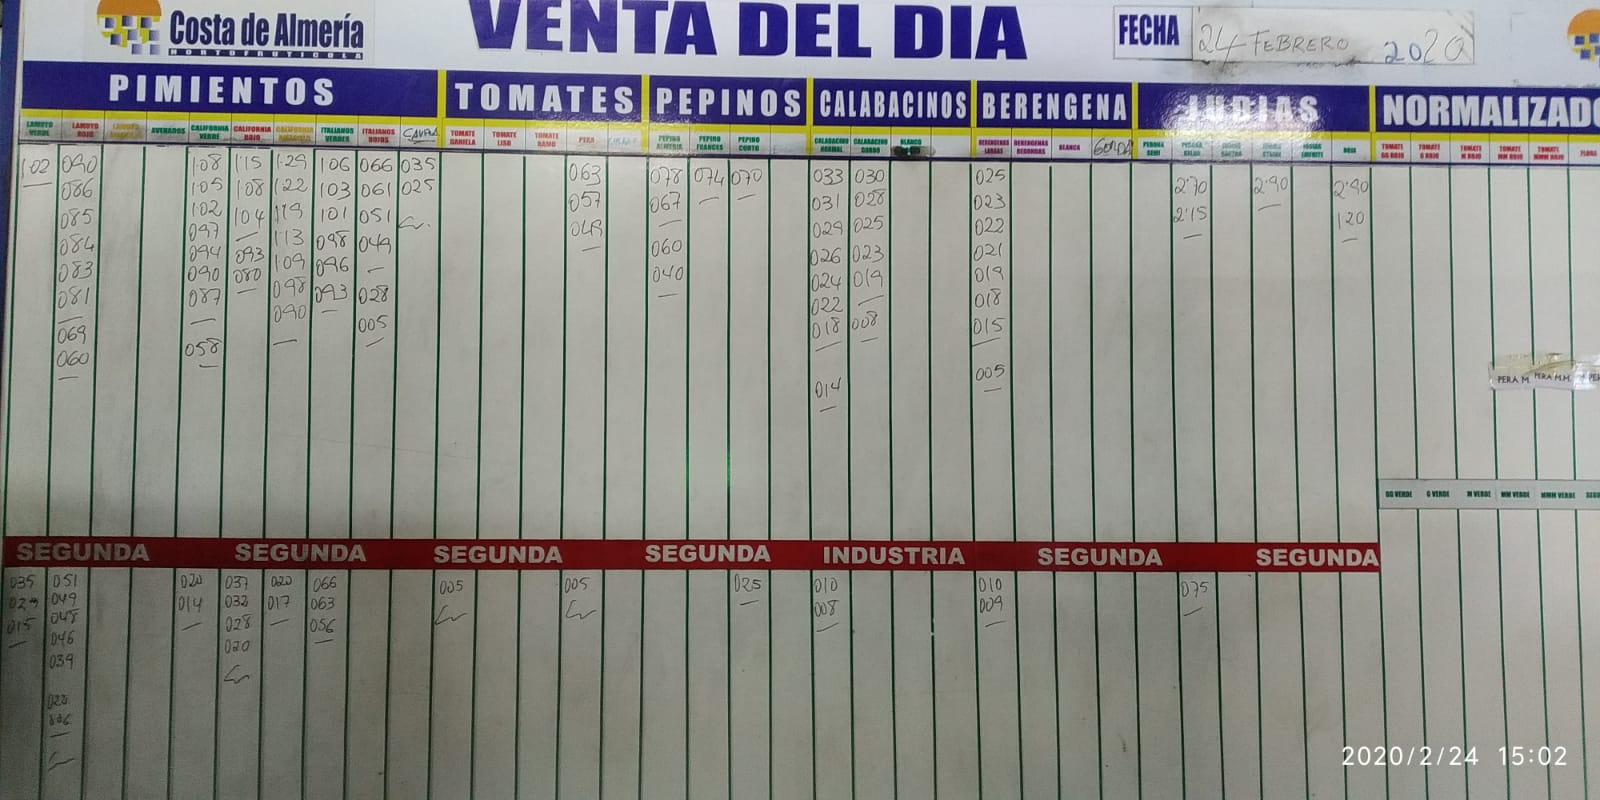 Costa de Almería
HORTOFRUTICOLA
VENTA DEL DIA
FECHA 24 FEBRERO 2020
PIMIENTOS TOMATES PEPINOS CALABACINOS BERENGENA JUDIAS NORMALIZADO
LAMUYO VERDE LAMUYO ROJO CALIFORNIA VERDE CALIFORNIA ROJO ITALIANOS VERDES ITALIANOS ROJOS TOMATE DANIELA TOMATE LISO TOMATE RAMO PERA PEPINO ALMERIA PEPINO FRANCES PEPINO CORTO CALABACINO CALABACINO GORDO BLANCO BERENGENAS LARGAS BERENGENAS REDONDAS BLANCA GORDA
1'02 090 1'08 1'15 1'29 1'06 066 035 063 078 074 070 033 030 025 2'70 2'90 2'90
086 1'05 1'08 1'22 103 061 025 057 067 031 028 023 2'15 1'20
085 102 104 119 101 051 049 060 029 025 022
084 097 093 113 098 049 040 026 023 021
083 094 080 109 096 028 024 019 019
081 090 098 093 005 022 008 018
069 087 090 018 015
060 058 014 005
PERA M. PERA M.M.
GG VERDE G VERDE M VERDE MM VERDE MMM VERDE
SEGUNDA SEGUNDA SEGUNDA SEGUNDA INDUSTRIA SEGUNDA SEGUNDA
035 051 020 037 020 066 005 005 025 010 010 075
049 014 032 017 063 008 009
015 048 028 056
046 020
039
2020/2/24 15:02